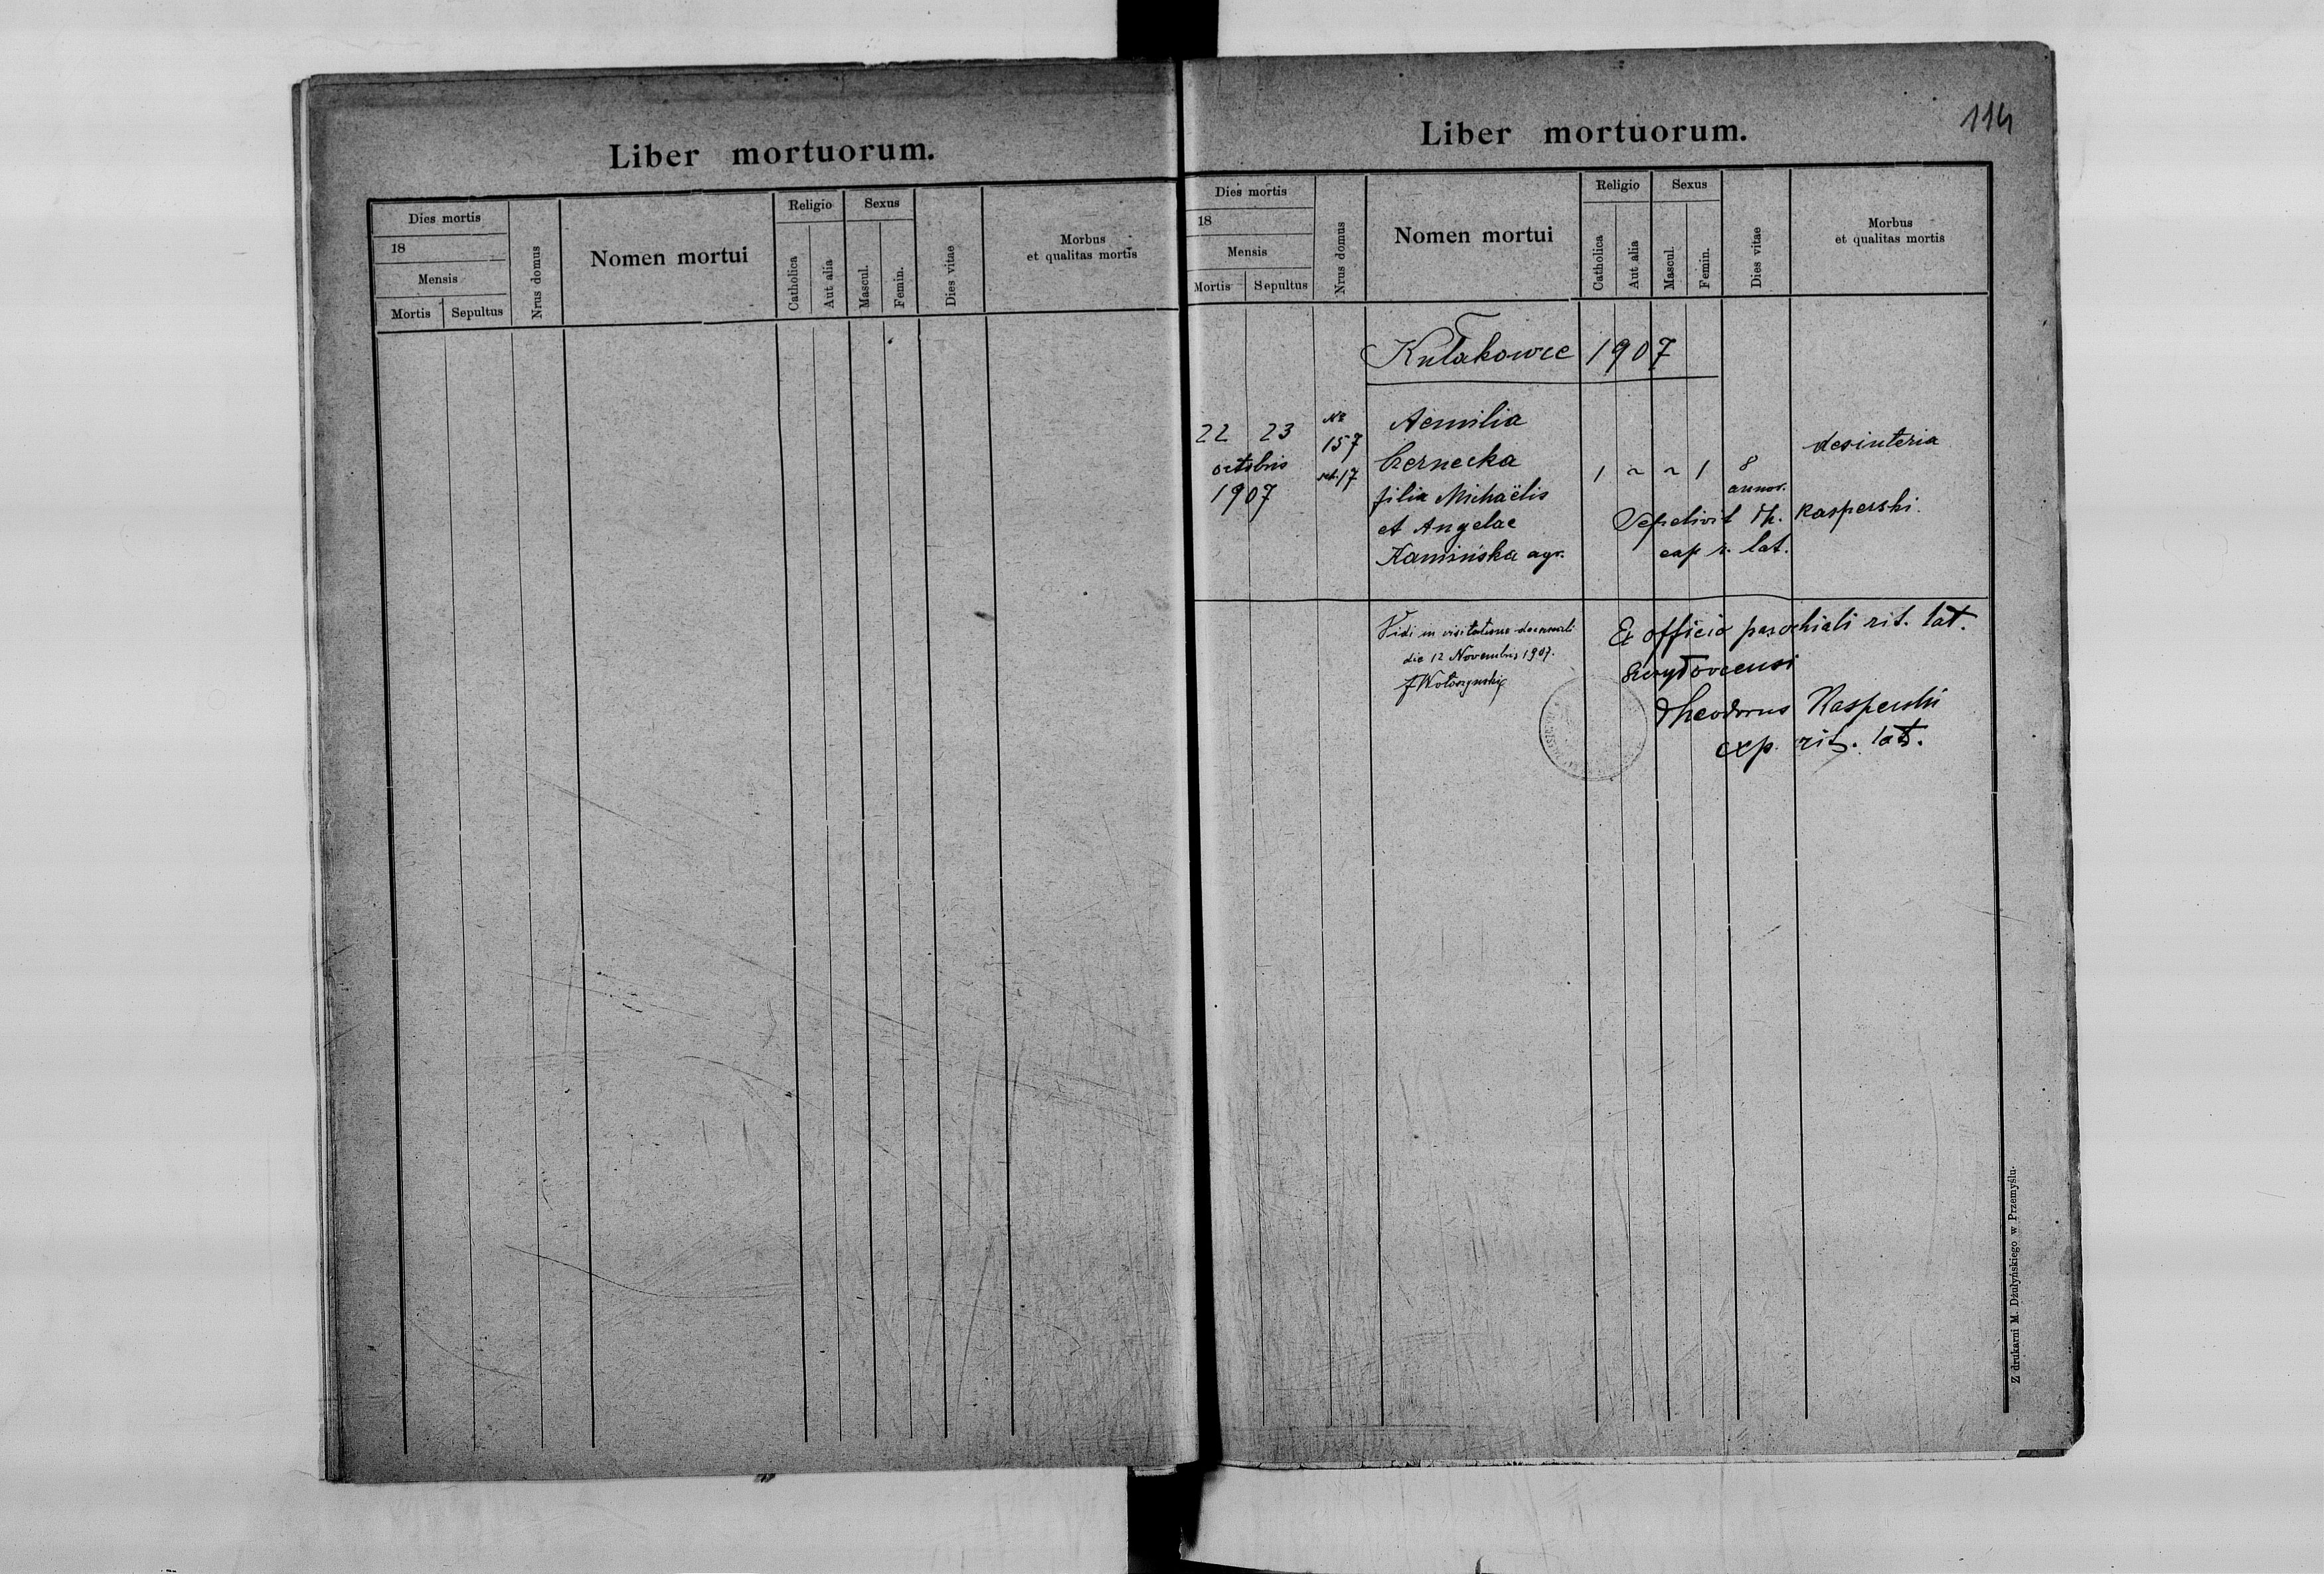 Liber mortuorum.
Dies mortis
18
Mensis
Mortis Sepultus
Nrus domus
Nomen mortui
Religio
Catholica
Aut alia
Sexus
Mascul.
Femin.
Dies vitae
Morbus
et qualitas mortis
114
Liber mortuorum.
Dies mortis
18
Mensis
Mortis Sepultus
Nrus domus
Nomen mortui
Religio
Catholica
Aut alia
Sexus
Mascul.
Femin.
Dies vitae
Morbus
et qualitas mortis
Kułakowce 1907
22 23
octobris
1907
No
157
17
Aemilia
Czernecka
filia Michaëlis
et Angelae
Kamińska agr.
1 ~ ~ 1 8
annor.
desinteria
Sepelivit Th. Kasperski
exp r. lat.
Vidi in visitatione decanali
die 12 Novembris 1907.
Ex officio parochiali rit. lat.
Theodorus Kasperski
exp. rit. lat.
Z drukarni M. Dżułyńskiego w Przemyślu.